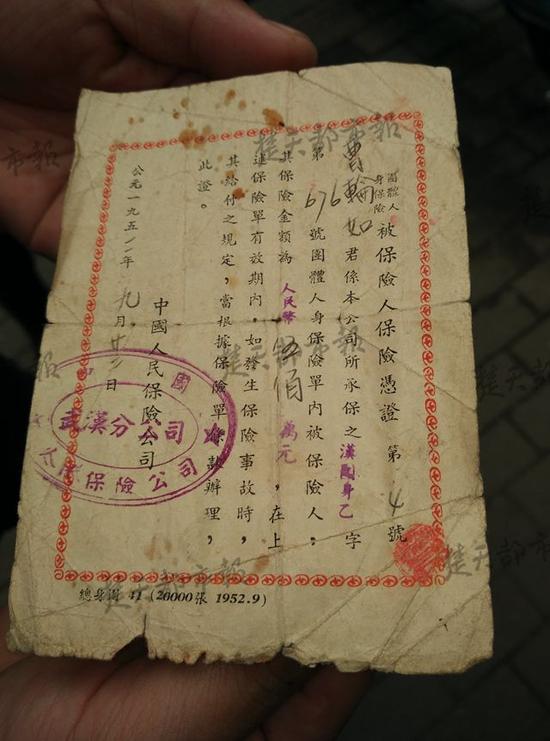 團體人身保險 被保險人保險憑證 第 4 號
曹輪如 君係本公司所承保之漢團身乙字
第 676 號團體人身保險單內被保險人,
其保險金額為人民幣伍佰萬元,在上
述保險單有效期內,如發生保險事故時,
其給付之規定,當根據保險單條款辦理,
此證。
中國人民保險公司
公元一九五 年九月 日
武漢分公司
保險公司
總身團 41 (20000張 1952.9)
楚天都市報
楚天都市報
楚天都市報
楚天都市報
楚天都市報
市報
報